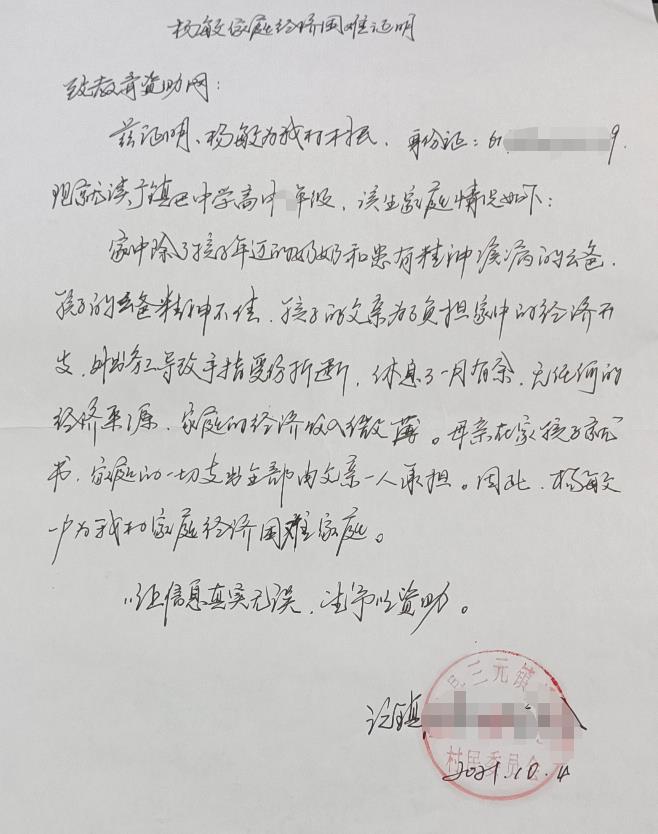 杨敏家庭经济困难证明
致教育资助网：
兹证明、杨敏为我村村民，身份证：61 9.
现就读于镇巴中学高中 年级，该生家庭情况如下：
家中除了孩子年迈的奶奶和患有精神疾病的爸爸.
孩子的爸爸精神不佳，孩子的父亲为了负担家中的经济开
支，外出务工导致手指受伤折断，休息了一月有余，无任何的
经济来源，家庭的经济收入微薄。母亲在家孩子
书，家庭的一切支出全部由父亲一人承担。因此，杨敏
户为我村家庭经济困难家庭。
以上信息真实无误，请予以资助。
三元镇
村民委员会
2021.10.4